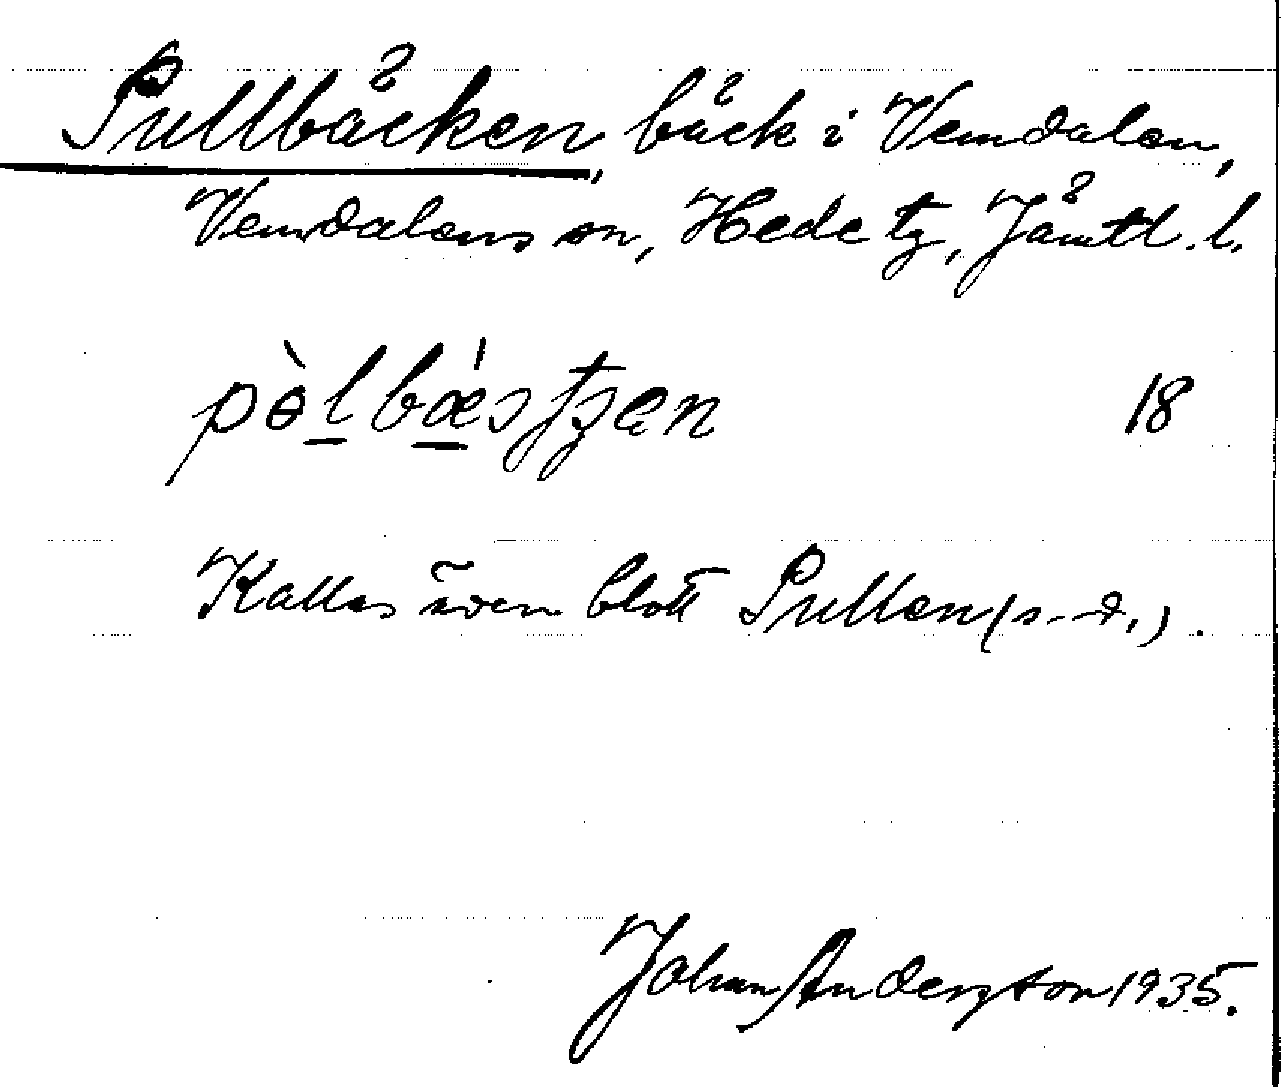 Pullbäcken, bäck i Vemdalen,
Vemdalens sn, Hede tg, Jämtl. l.
18
Kallas även blott Pullen (s. d.).
Johan Anderzton 1935.